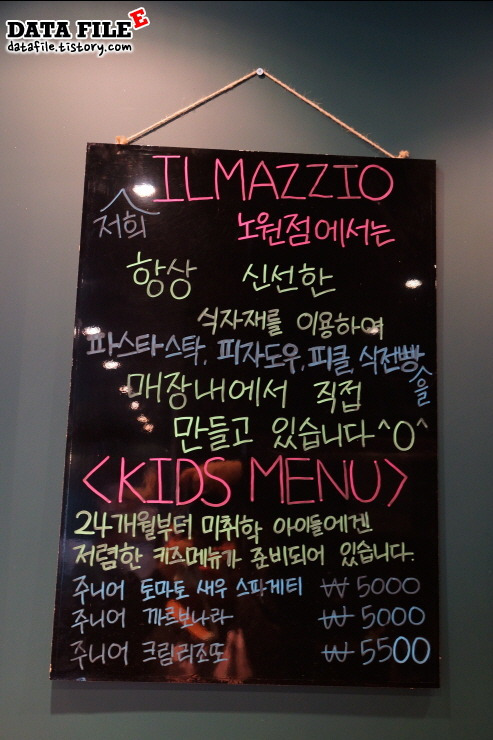 DATA FILE E
datafile.tistory.com
ILMAZZIO
저희 노원점에서는
항상 신선한
식자재를 이용하여
파스타스탁, 피자도우, 피클, 식전빵을
매장내에서 직접
만들고 있습니다 ^O^
<KIDS MENU>
24개월부터 미취학 아이들에겐
저렴한 키즈메뉴가 준비되어 있습니다.
주니어 토마토 새우 스파게티 ₩ 5000
주니어 까르보나라 ₩ 5000
주니어 크림리조또 ₩ 5500